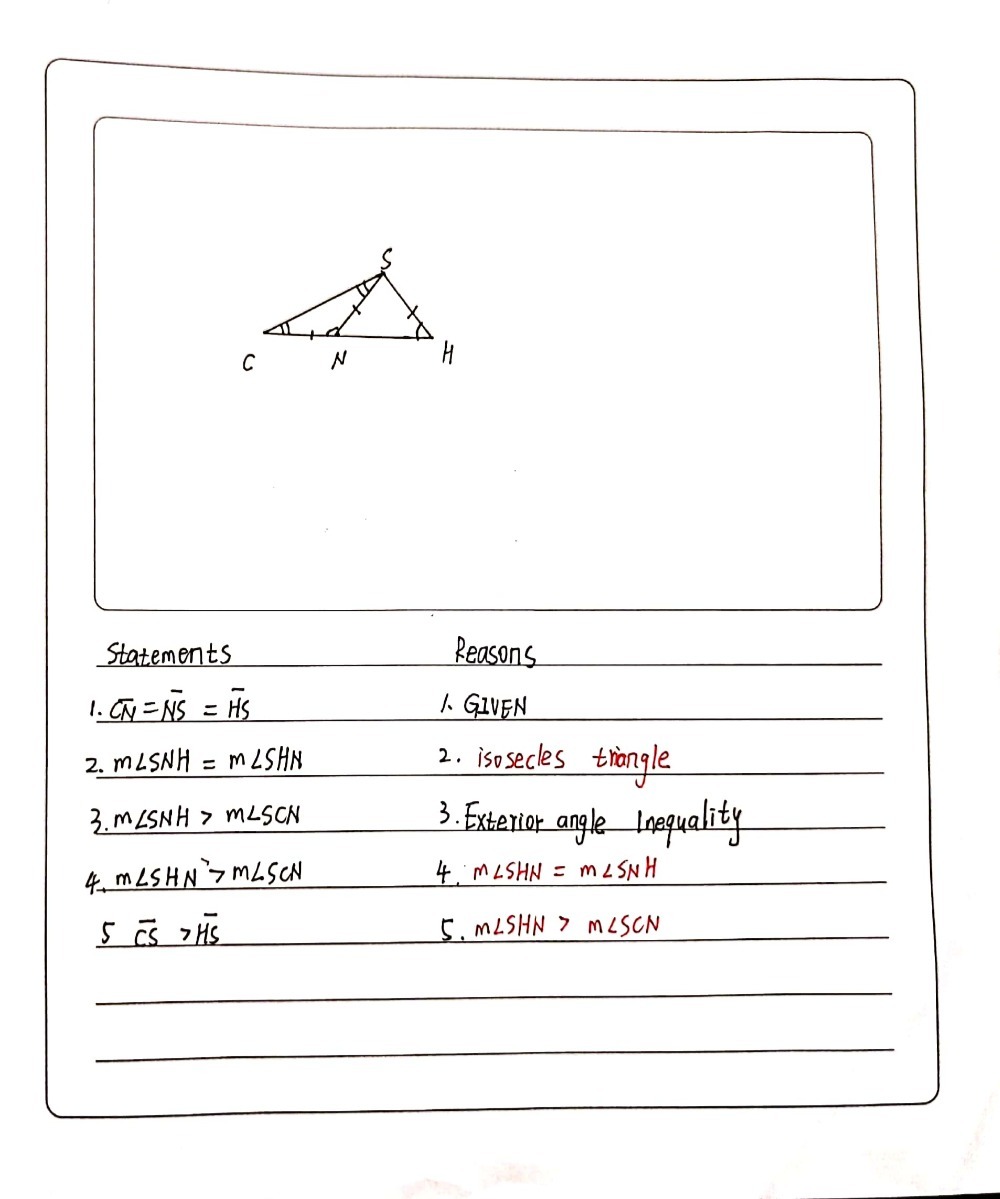 S
C N H
Statements Reasons
1. C̅N̅ = N̅S̅ = H̅S̅ 1. GIVEN
2. m∠SNH = m∠SHN 2. isosecles triangle
3. m∠SNH > m∠SCN 3. Exterior angle Inequality
4. m∠SHN > m∠SCN 4. m∠SHN = m∠SNH
5 C̅S̅ > H̅S̅ 5. m∠SHN > m∠SCN